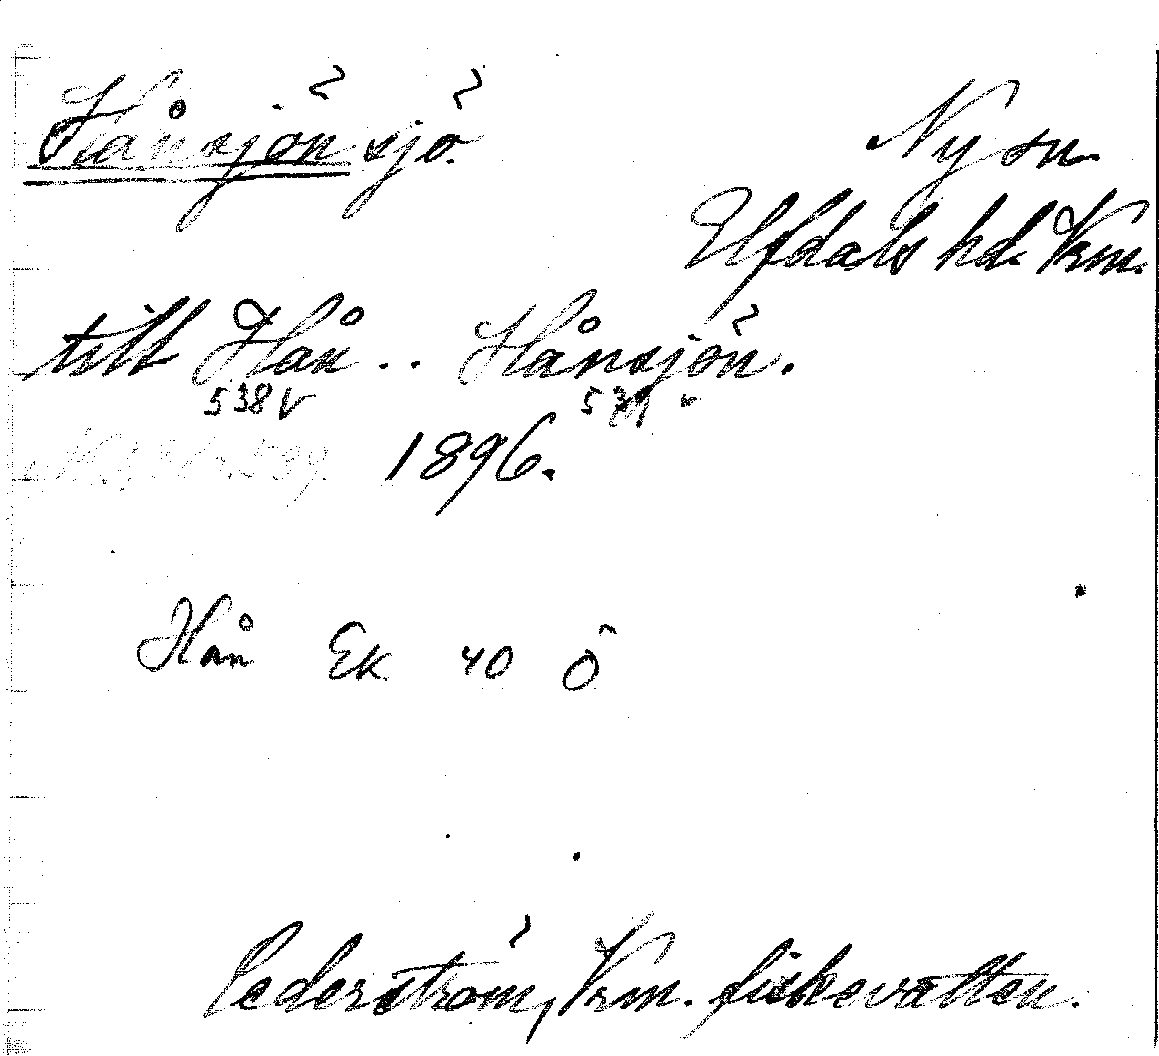 Hånsjön sjö.
Ny sn.
Elfdals hd. Vrm.
till Hån .. Hånsjön.
538 v
1896.
Hån Ek 40 Ö
Cederström, Vrm. fiskevatten.